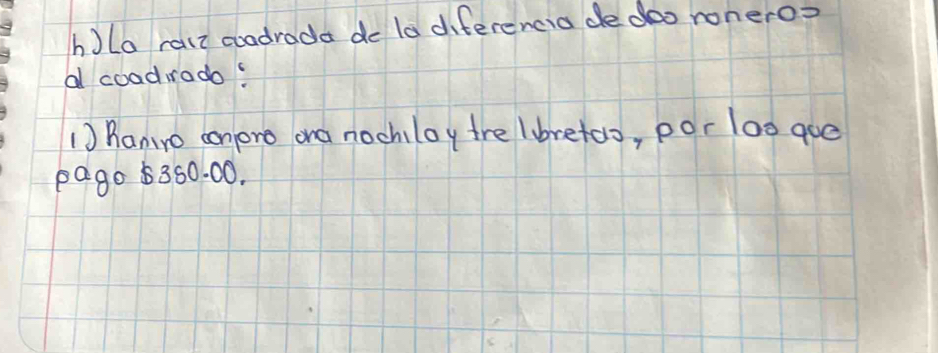 h) La raiz cuadrada de la diferencia de dos numeros
al cuadrado:
i) Ramiro compro una mochila y tre libretas, por las que
pago $350.00.